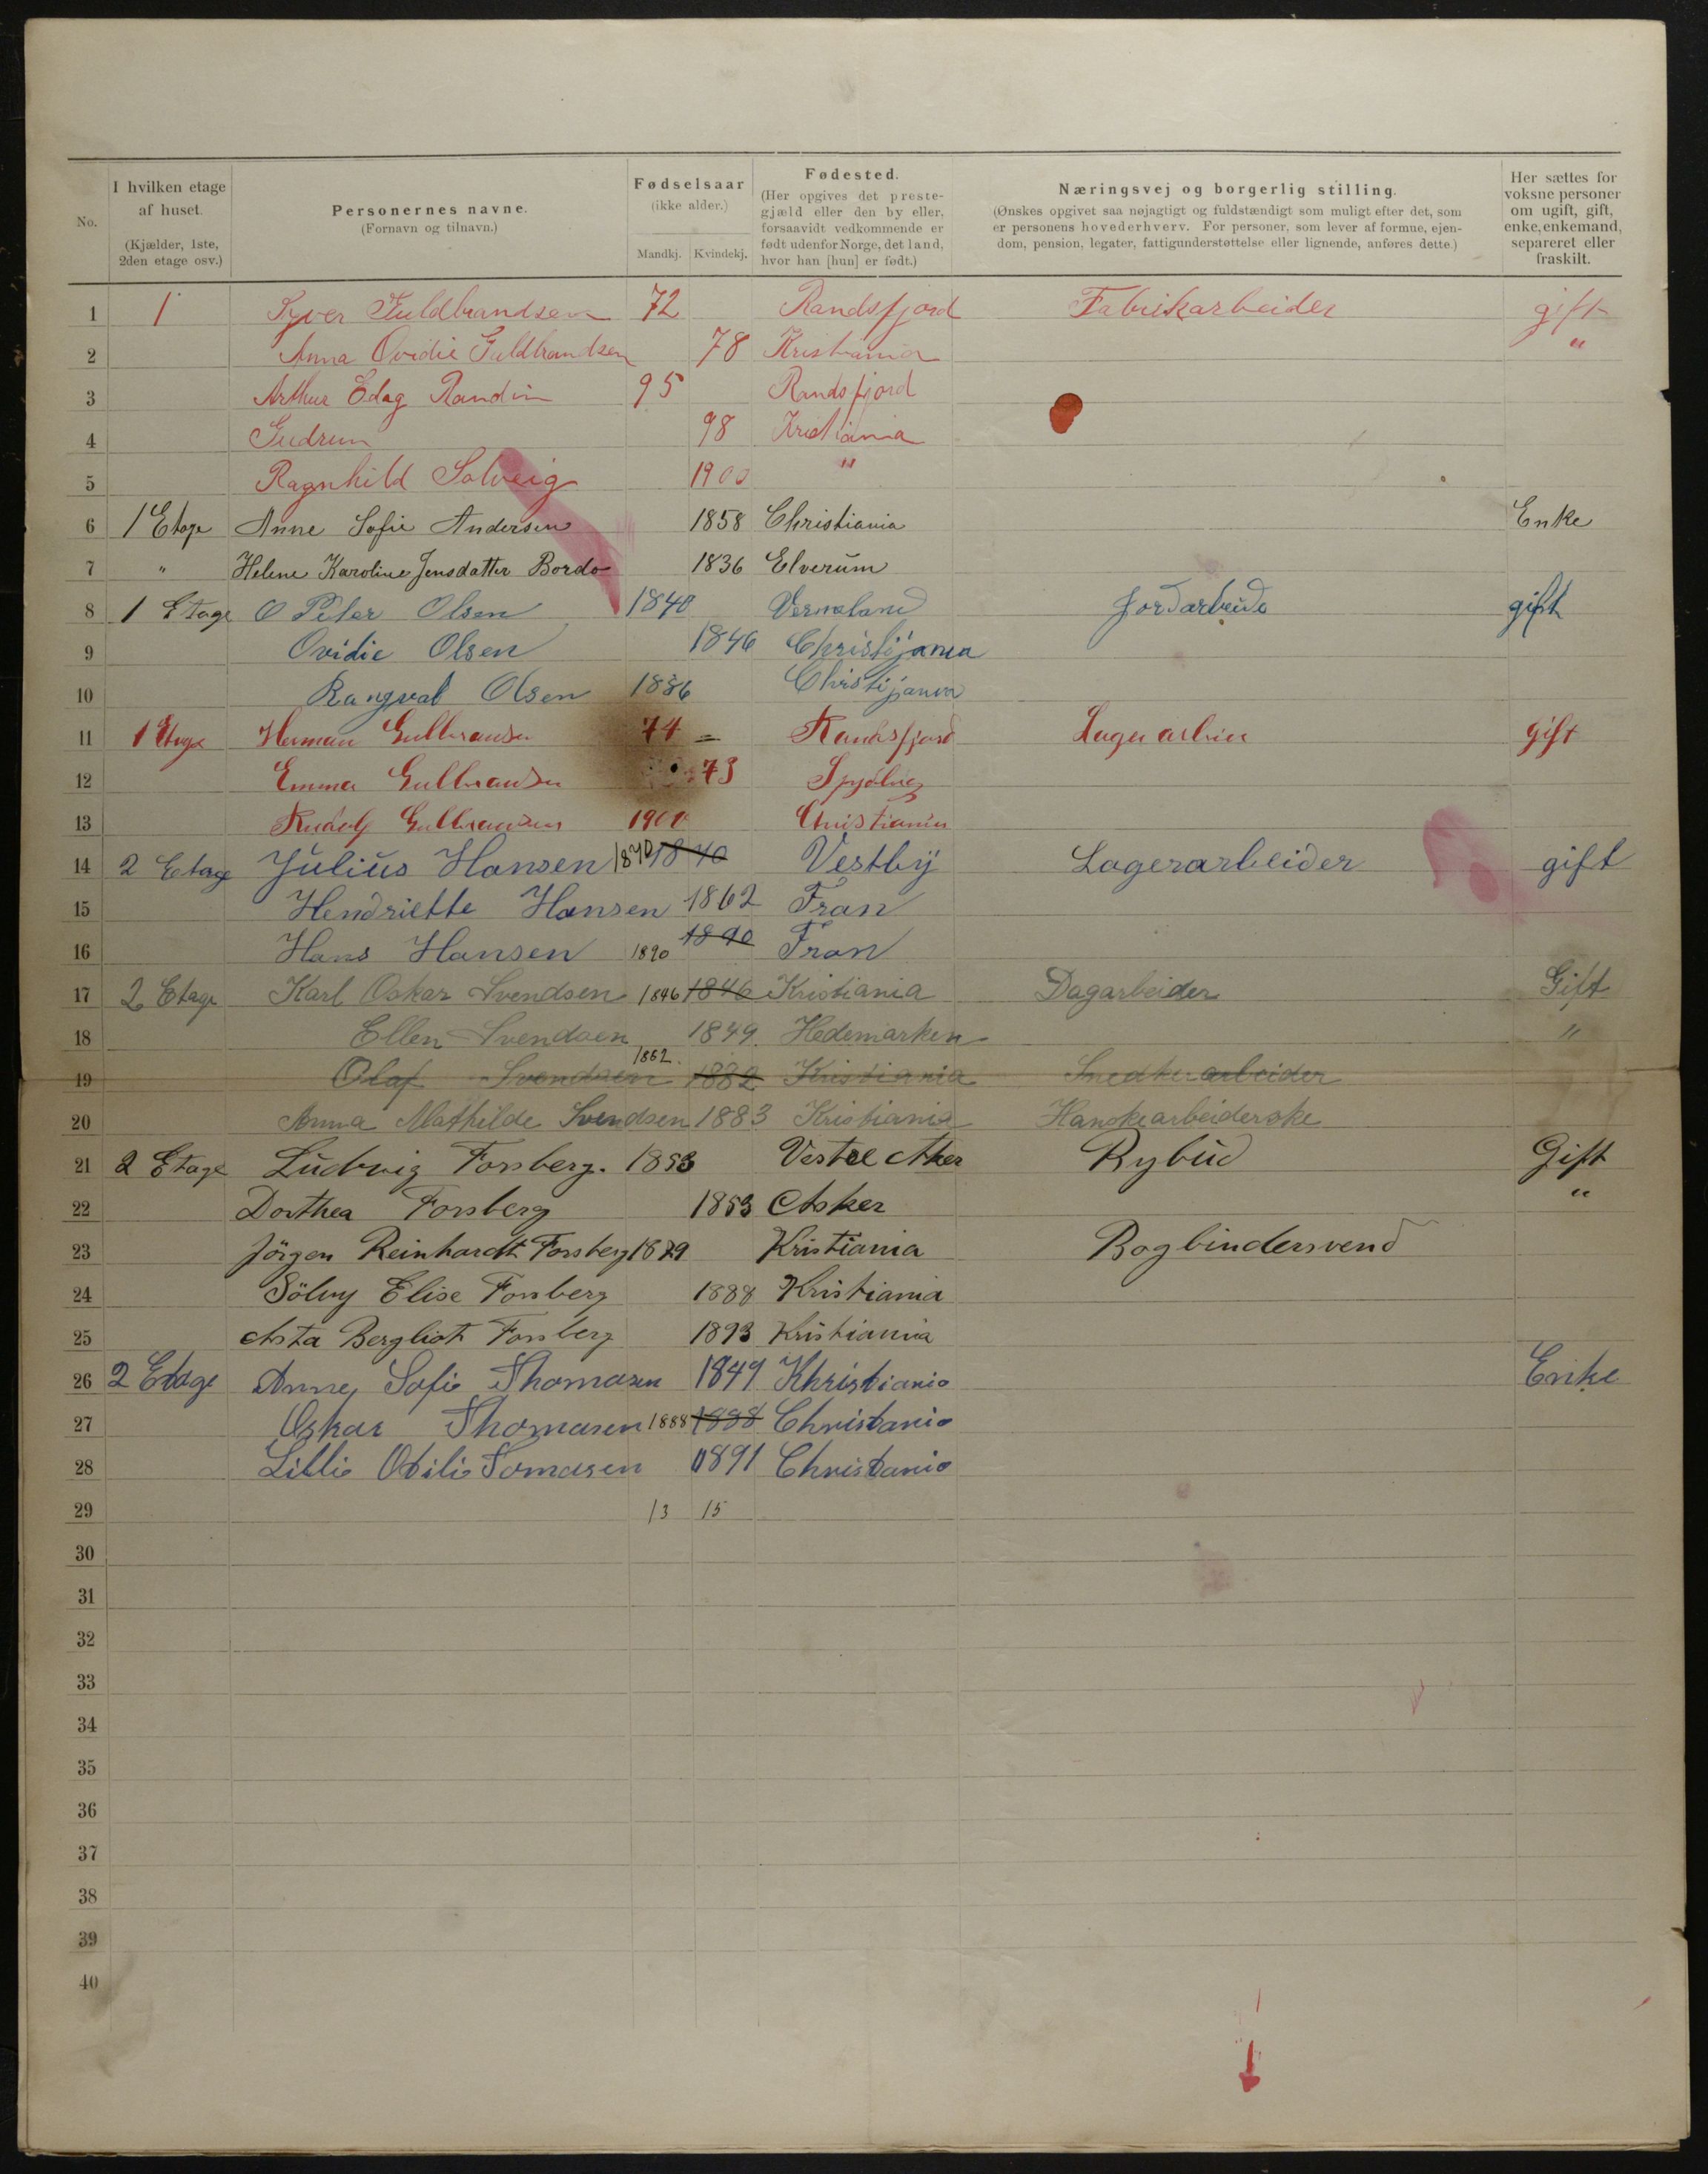 No. | I hvilken etage af huset. (Kjælder, 1ste, 2den etage osv.) | Personernes navne. (Fornavn og tilnavn.) | Fødselsaar (ikke alder.) Mandkj. Kvindekj. | Fødested. (Her opgives det prestegjæld eller den by eller, forsaavidt vedkommende er født udenfor Norge, det land, hvor han [hun] er født.) | Næringsvej og borgerlig stilling. (Ønskes opgivet saa nøjagtigt og fuldstændigt som muligt efter det, som er personens hovederhverv. For personer, som lever af formue, ejendom, pension, legater, fattigunderstøttelse eller lignende, anføres dette.) | Her sættes for voksne personer om ugift, gift, enke, enkemand, separeret eller fraskilt.
1 1 Syver Guldbrandsen 72 Randsfjord Fabrikarbeider gift
2 Anna Ovidie Guldbrandsen 78 Kristiania "
3 Arthur Edag Randin 95 Randsfjord
4 Gudrun 98 Kristiania
5 Ragnhild Solveig 1900 "
6 1 Etage Anne Sofie Andersen 1858 Christiania Enke
7 " Helene Karoline Jensdatter Bordo 1836 Elverum
8 1 Etage O Peter Olsen 1840 Vermeland Jordarbeide gift
9 Ovidie Olsen 1846 Christijania
10 Rangval Olsen 1886 Christijania
11 1 Etage Herman Gulbransen 74 Randsfjord Lagerarbier gift
12 Emma Gulbransen 73
13 Rudolf Gulbransen 1900 Christiania
14 2 Etage Julius Hansen 1840 1840 Vestby Lagerarbeider gift
15 Hendriette Hansen 1862 Fran
16 Hans Hansen 1890 1890 Fran
17 2 Etage Karl Oskar Svendsen 1846 1846 Kristiania Dagarbeider Gift
18 Ellen Svendsen 1849. Hedemarken "
19 Olaf Svendsen 1862. 1882 Kristiania Snedkerarbeider
20 Anna Mathilde Svendsen 1883 Kristiania Hanskearbeiderske
21 2 Etage Ludvig Forsberg. 1853 Vestre Aker Bybud Gift
22 Dorthea Forsberg 1853 Asker "
23 Jörgen Reinhardt Forsberg 1879 Kristiania Bogbindersvend
24 Sölvy Elise Forsberg 1888 Kristiania
25 Asta Bergliot Forsberg 1893 Kristiania
26 2 Etage Anne Sofie Thomasen 1849 Khristiania Enke
27 Oskar Thomasen 1888 1888 Christania
28 Lillie Otilie Tomasen 1891 Christania
29 13 15
30
31
32
33
34
35
36
37
38
39
40